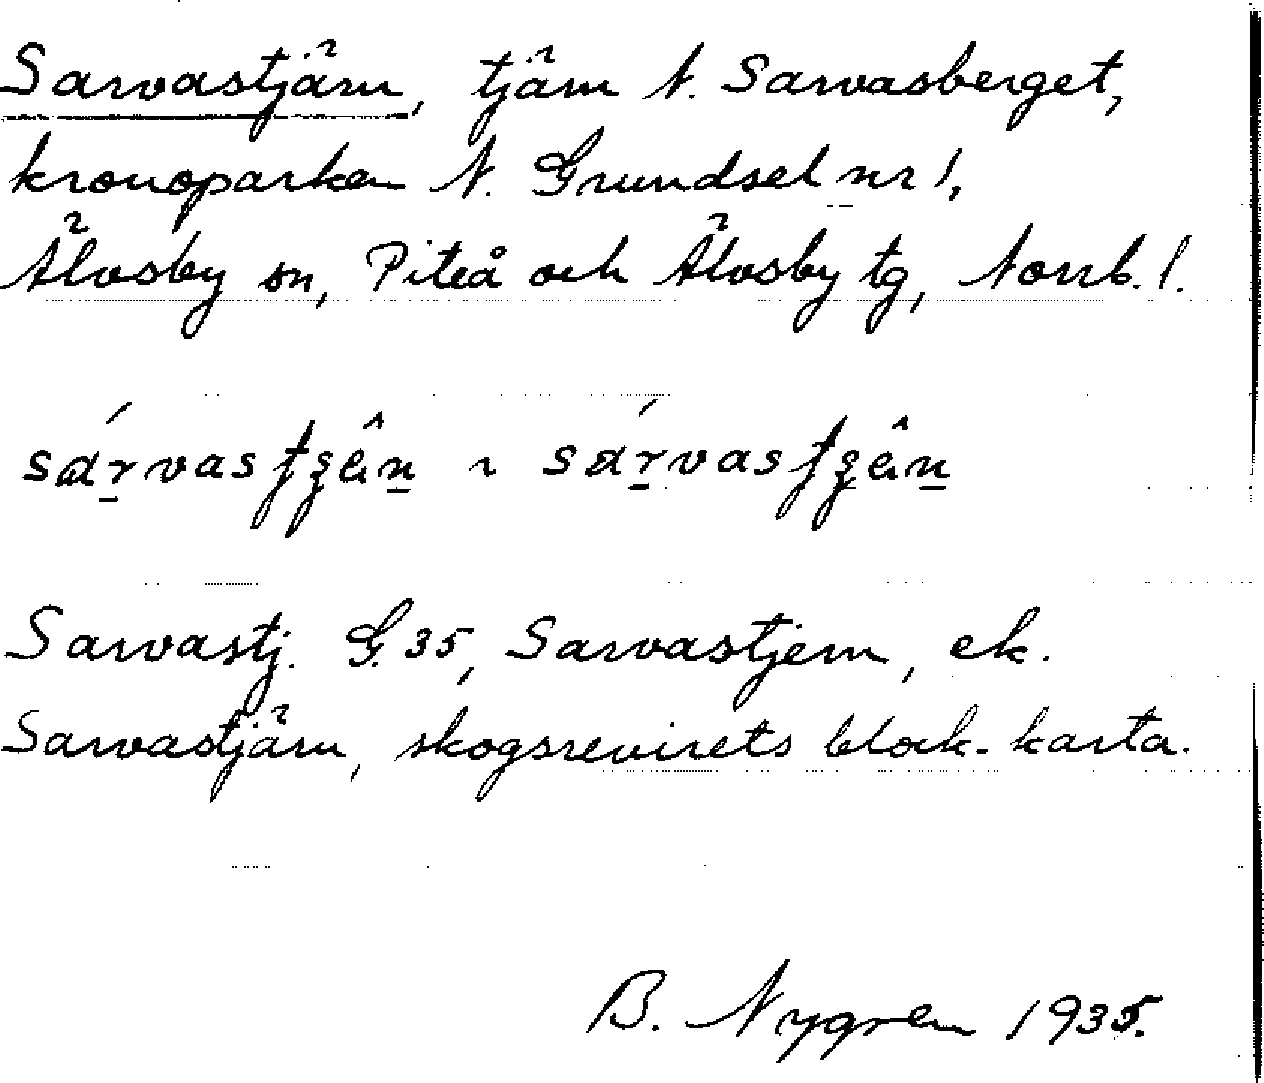 Sarvastjärn, tjärn N. Sarvasberget,
kronoparken N. Grundsel nr 1,
Älvsby sn, Piteå och Älvsby tg, Norrb. l.
sárvastʃɛ̂n ~ sárvastʃɛ̂n
Sarvastj. G. 35, Sarvastjern, ek.
Sarvastjärn, skogsrevirets block-karta.
B. Nygren 1935.